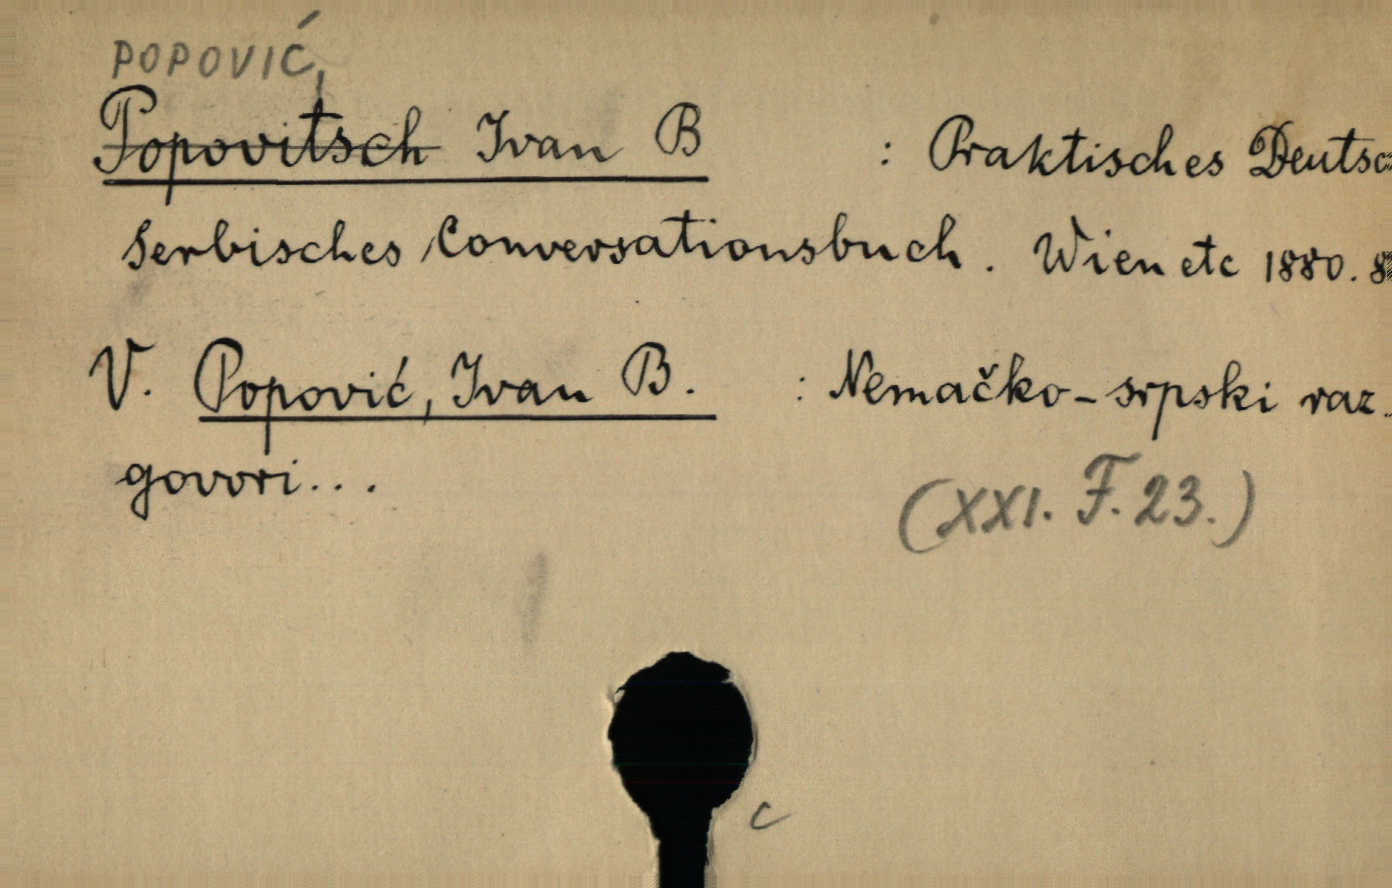 POPOVIĆ,
Popovitsch Ivan B : Praktisches Deutsc
Serbisches Conversationsbuch. Wien etc 1880. 8
V. Popović, Ivan B. : Nemačko-srpski raz.
govori...
(XXI. F. 23.)
c